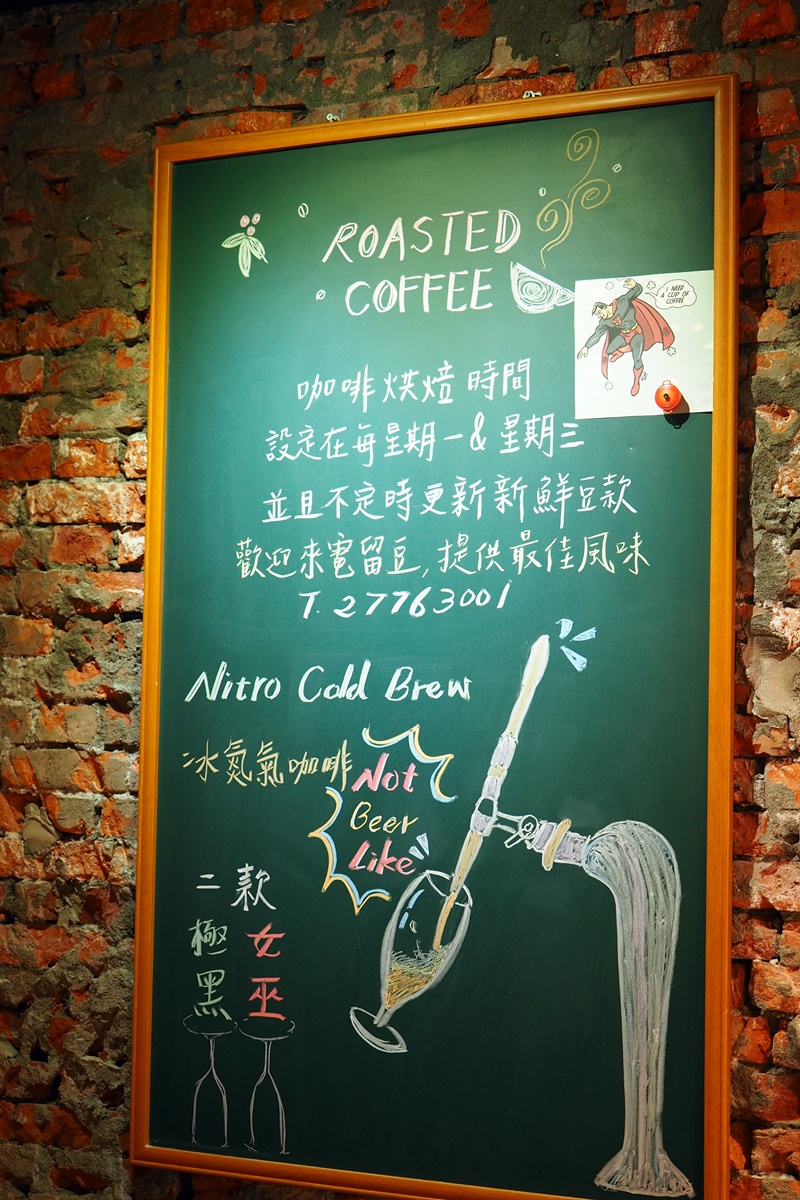 ROASTED
COFFEE
I NEED
A CUP OF
COFFEE
咖啡烘焙時間
設定在每星期一&星期三
並且不定時更新新鮮豆款
歡迎來電留豆,提供最佳風味
T. 27763001
Nitro Cold Brew
冰氮氣咖啡
Not
Beer
Like
二款
極黑
女巫